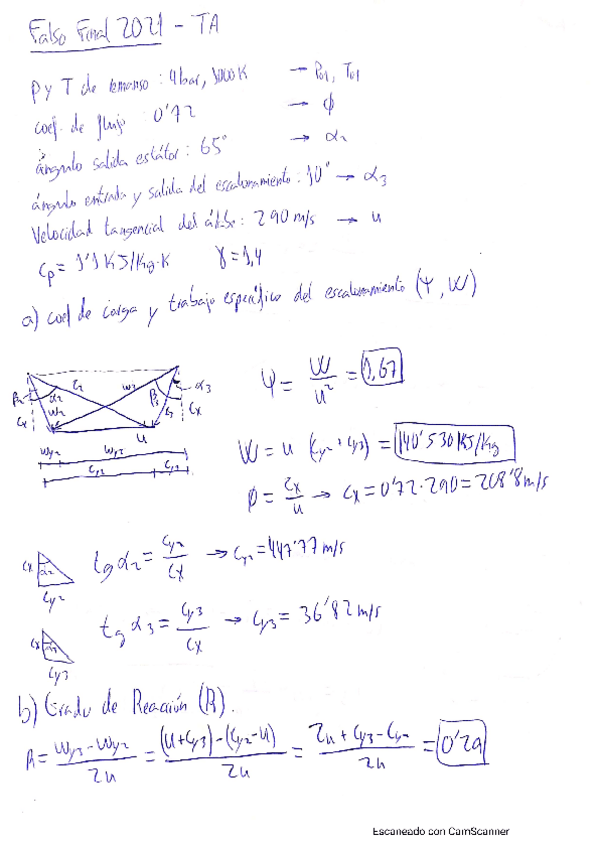 Falso Final 2021 - TA
P y T de remanso: 4bar, 1000K → P01, T01
coef. de flujo: 0'72 → ϕ
ángulo salida estátor: 65° → α2
ángulo entrada y salida del escalonamiento: 10° → α3
Velocidad tangencial del álabe: 290 m/s → u
Cp = 1'1 KJ/Kg·K γ = 1,4
a) coef de carga y trabajo específico del escalonamiento (Ψ, W)
β2 α2 c2 w2 w3 β3 c3 α3 cx cx
u
wy2 wy3
cy2 cy3
Ψ = W/u² = 1,67
W = u (cy2 + cy3) = 140'530 KJ/Kg
ϕ = cx/u → cx = 0'72·290 = 208'8 m/s
cx α2 cy2
tg α2 = cy2/cx → cy2 = 447'77 m/s
cx α3 cy3
tg α3 = cy3/cx → cy3 = 36'82 m/s
b) Grado de Reacción (R).
R = (wy3 - wy2)/2u = ((u+cy3) - (cy2-u))/2u = (2u + cy3 - cy2)/2u = 0'29
Escaneado con CamScanner